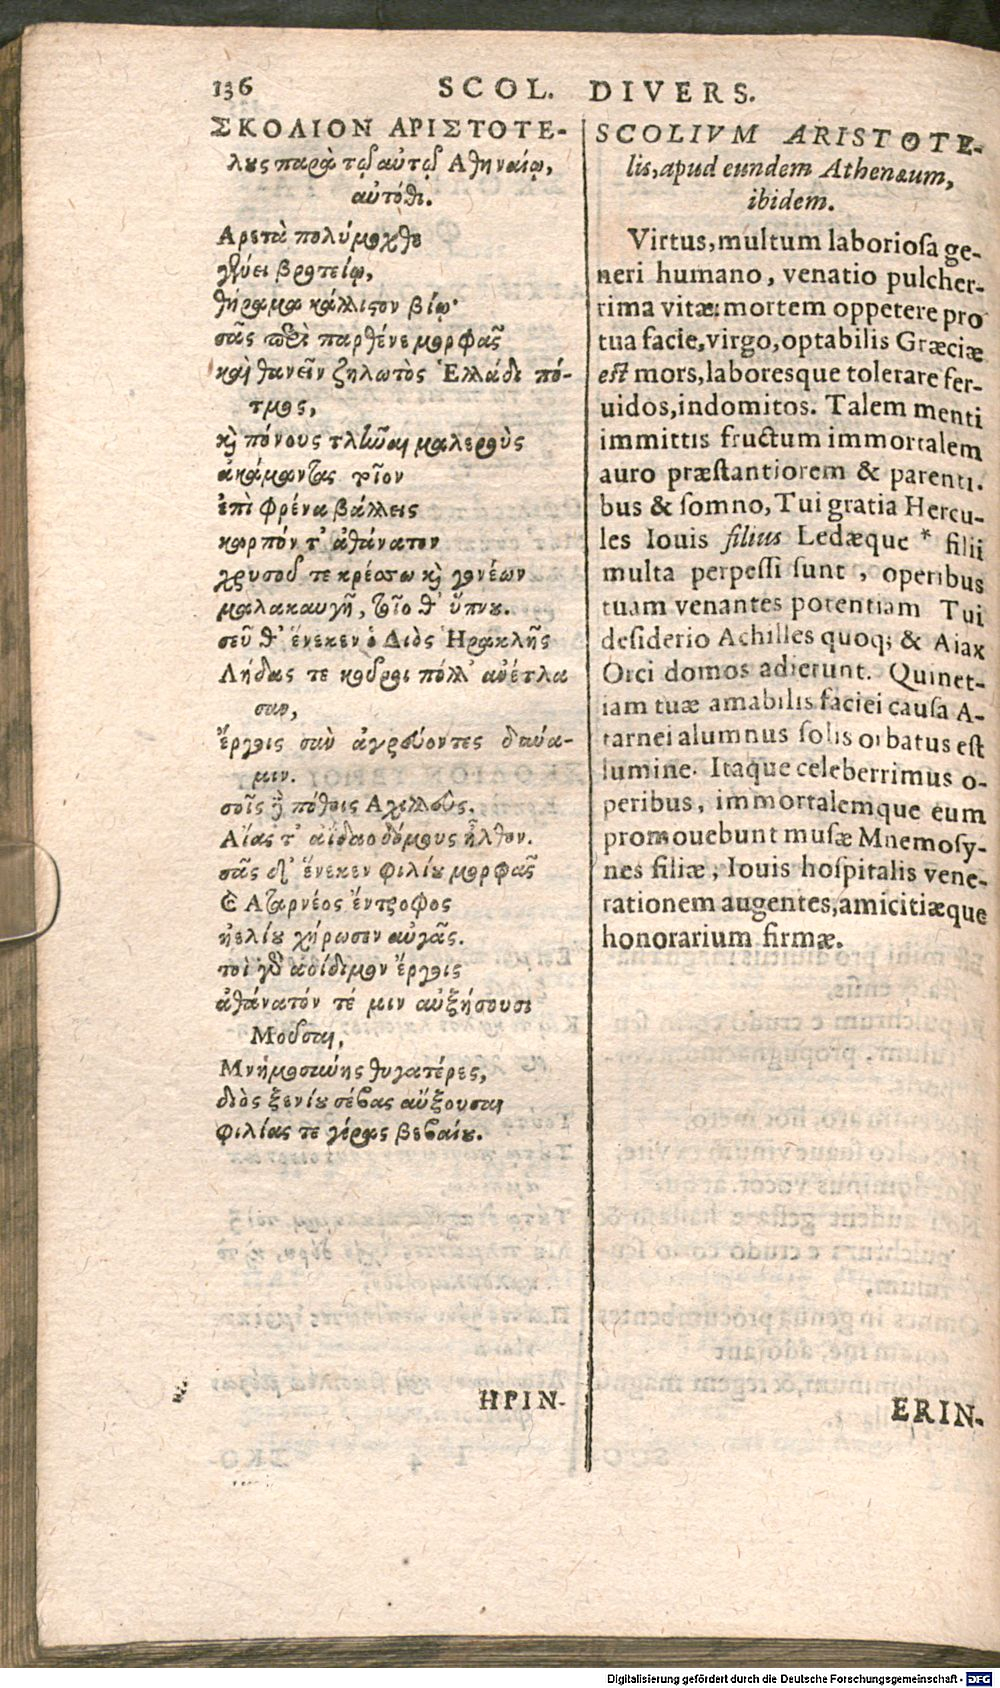 136 SCOL. DIVERS.
ΣΚΟΛΙΟΝ ΑΡΙΣΤΟΤΕ-
λους παρὰ τῷ αὐτῷ Αθηναίῳ,
αὐτόθι.
Αρετὰ πολύμοχθε
γένει βροτείῳ,
θήραμα κάλλιστον βίῳ·
σᾶς περὶ παρθένε μορφᾶς
καὶ θανεῖν ζηλωτὸς Ἑλλάδι πό-
τμος,
καὶ πόνους τλῆναι μαλεροὺς
ἀκάμαντας
ἐπὶ φρένα βάλλεις
καρπόν τ' ἀθάνατον
χρυσοῦ τε κρέσσω καὶ γονέων
μαλακαυγῆ, θ' ὕπνου.
σεῦ θ' ἕνεκεν ὁ Διὸς Ἡρακλῆς
Λήδας τε κοῦροι πόλλ' ἀνέτλα
σαν,
ἔργοις σὰν ἀγρεύοντες δύνα-
μιν.
σοῖς δὲ πόθοις Αχιλλεὺς.
Αἴας τ' αἴδαο δόμους ἦλθον.
σᾶς δ' ἕνεκεν φιλίου μορφᾶς
Αταρνέος ἔντροφος
ἠελίου χήρωσεν αὐγᾶς.
τοὶ γὰρ ἀοίδιμον ἔργοις
ἀθάνατόν τέ μιν αὐξήσουσι
Μοῦσαι,
Μνημοσύνης θυγατέρες,
διὸς ξενίου σέβας αὔξουσαι
φιλίας τε γέρας βεβαίου.
ΗΡΙΝ-
SCOLIVM ARISTOTE-
lis, apud eundem Athenæum,
ibidem.
Virtus, multum laboriosa ge-
neri humano, venatio pulcher-
rima vitæ: mortem oppetere pro
tua facie, virgo, optabilis Græciæ
est mors, laboresque tolerare fer-
uidos, indomitos. Talem menti
immittis fructum immortalem
auro præstantiorem & parenti-
bus & somno, Tui gratia Hercu-
les Iouis filius Ledæque * filii
multa perpessi sunt, operibus
tuam venantes potentiam Tui
desiderio Achilles quoq; & Aiax
Orci domos adierunt. Quinet-
iam tuæ amabilis faciei causa A-
tarnei alumnus solis orbatus est
lumine. Itaque celeberrimus o-
peribus, immortalemque eum
promouebunt musæ Mnemosy-
nes filiæ, Iouis hospitalis vene-
rationem augentes, amicitiæque
honorarium firmæ.
ERIN-
Digitalisierung gefördert durch die Deutsche Forschungsgemeinschaft - DFG